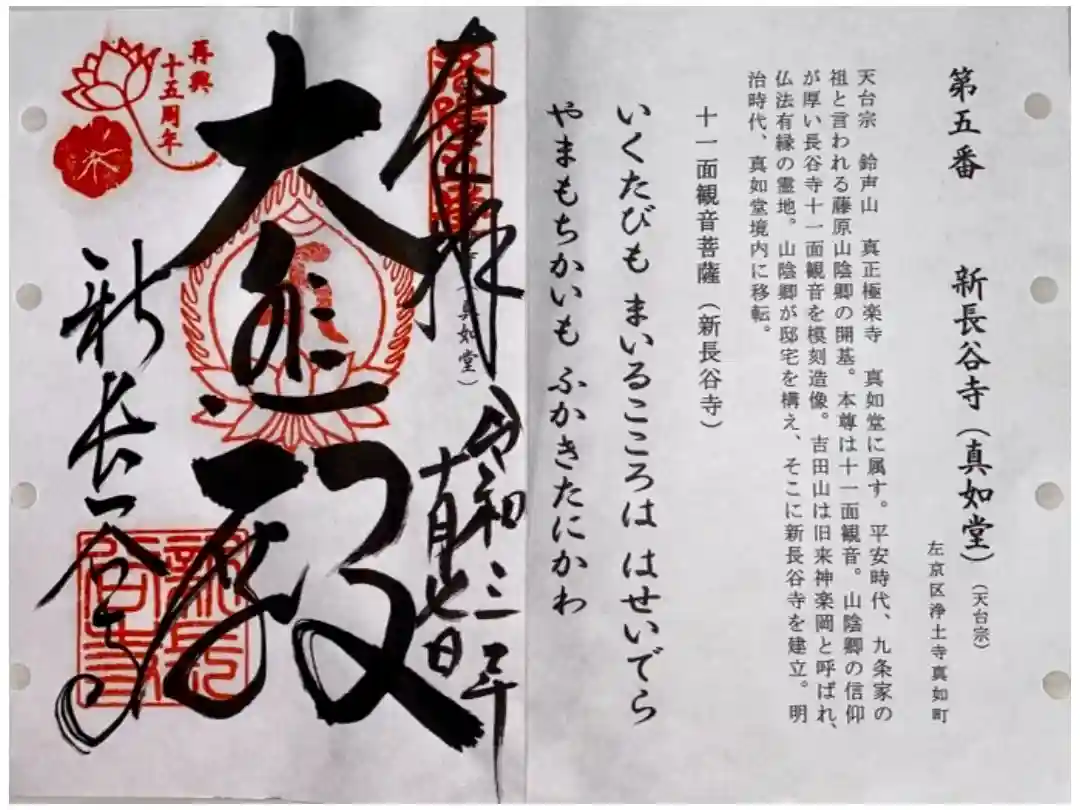 第五番　新長谷寺（真如堂）（天台宗）
左京区浄土寺真如町
天台宗　鈴声山　真正極楽寺　真如堂に属す。平安時代、九条家の
祖と言われる藤原山陰卿の開基。本尊は十一面観音。山陰卿の信仰
が厚い長谷寺十一面観音を模刻造像。吉田山は旧来神楽岡と呼ばれ、
仏法有縁の霊地。山陰卿が邸宅を構え、そこに新長谷寺を建立。明
治時代、真如堂境内に移転。
十一面観音菩薩（新長谷寺）
いくたびも まいるこころは はせいでら
やまもちかいも ふかきたにかわ
奉拝
（真如堂）
令和三年
十月七日
大悲殿
新長谷寺
再興
十五周年